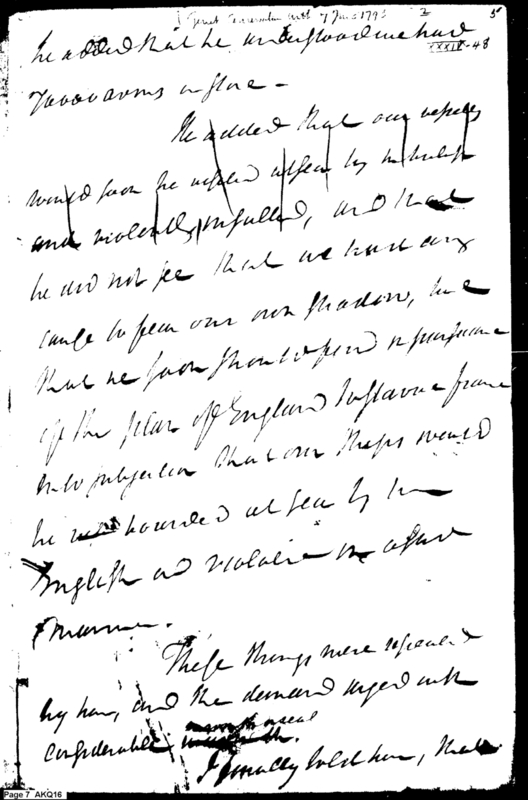 7 June 1793 2 5
he added that he understood we had
XXXIX-48
70000 arms in store -
He added that our vessels
would soon be at sea by
and violently insulted, and that
he did not see that we had any
cause to fear our own shadow, but
that we soon should find in pursuance
of the plan of England to starve France
into subjection that our ships would
be boarded at sea by the
English and
manner.
These things were repeated
by him, and the demand urged with
considerable
I finally told him, that
Page 7 AKQ16